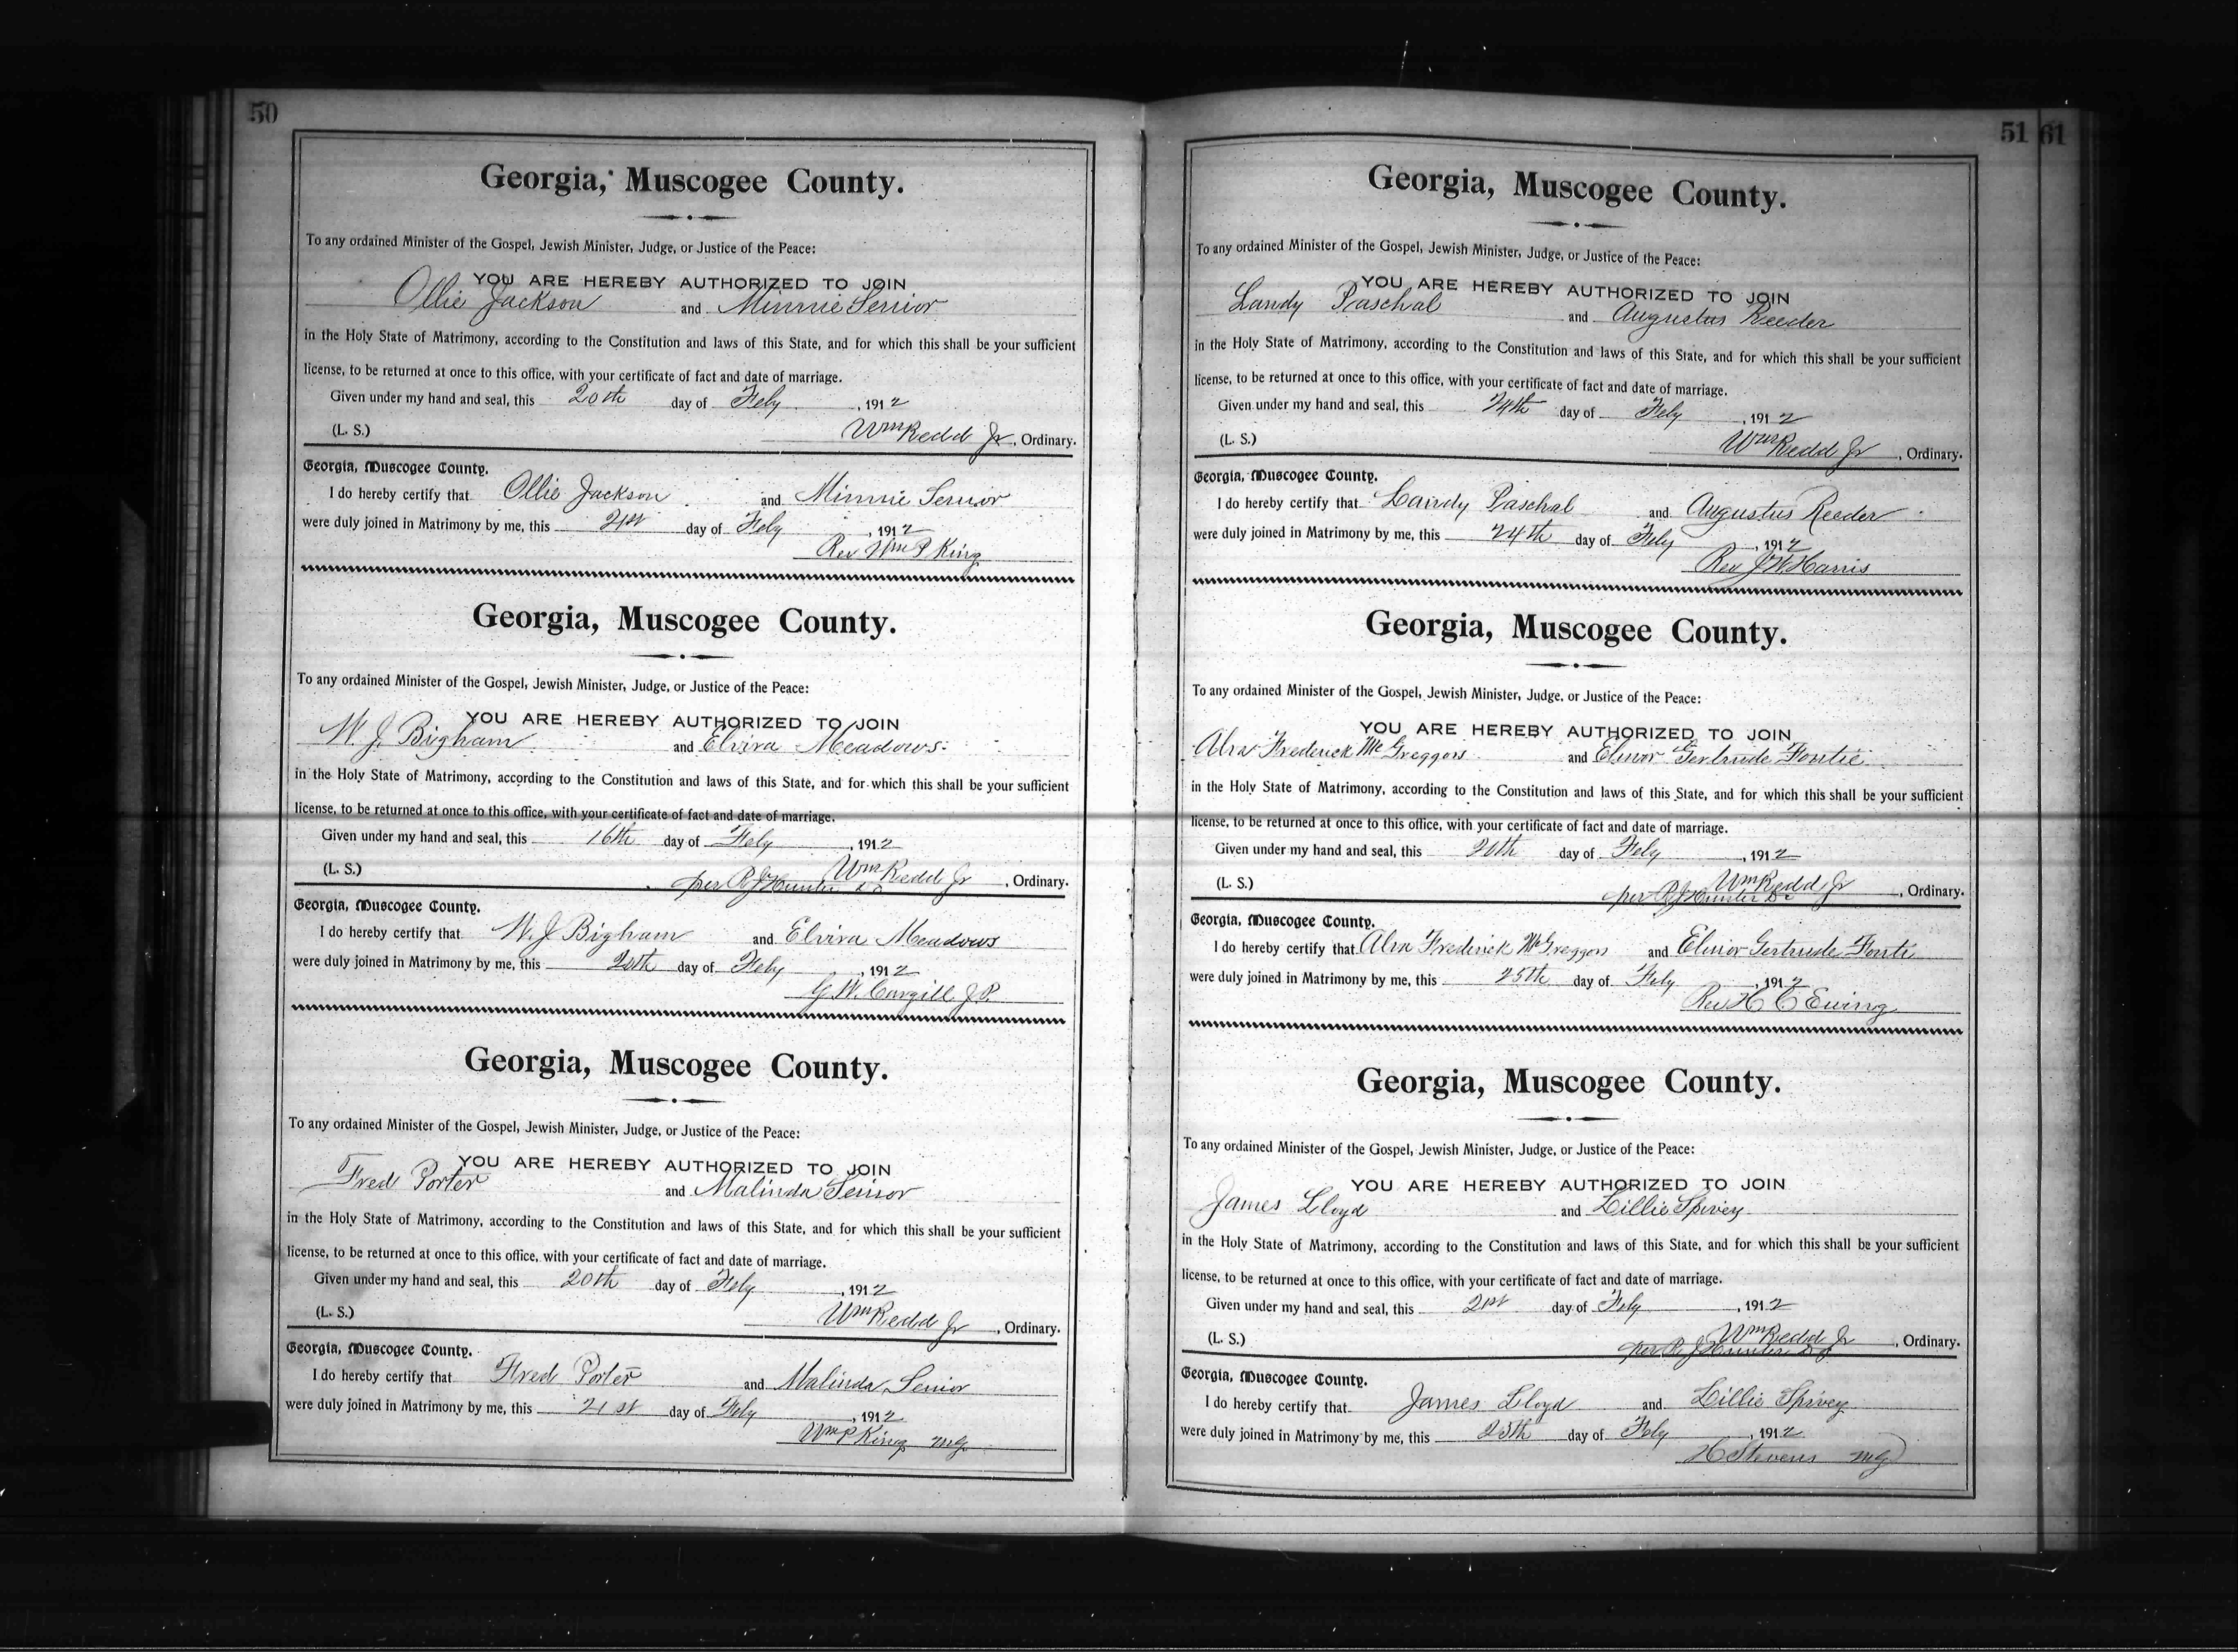 50
Georgia, Muscogee County.
To any ordained Minister of the Gospel, Jewish Minister, Judge, or Justice of the Peace:
YOU ARE HEREBY AUTHORIZED TO JOIN
Ollie Jackson and Minnie Senior
in the Holy State of Matrimony, according to the Constitution and laws of this State, and for which this shall be your sufficient
license, to be returned at once to this office, with your certificate of fact and date of marriage.
Given under my hand and seal, this 20th day of Feby, 1912
(L. S.) Wm Redd Jr, Ordinary.
Georgia, Muscogee County.
I do hereby certify that Ollie Jackson and Minnie Senior
were duly joined in Matrimony by me, this 21st day of Feby, 1912
Rev Wm P King
Georgia, Muscogee County.
To any ordained Minister of the Gospel, Jewish Minister, Judge, or Justice of the Peace:
YOU ARE HEREBY AUTHORIZED TO JOIN
W. J. Bigham and Elvira Meadows
in the Holy State of Matrimony, according to the Constitution and laws of this State, and for which this shall be your sufficient
license, to be returned at once to this office, with your certificate of fact and date of marriage.
Given under my hand and seal, this 16th day of Feby, 1912
(L. S.) Wm Redd Jr, Ordinary.
per R J Hunter
Georgia, Muscogee County.
I do hereby certify that W. J Bigham and Elvira Meadows
were duly joined in Matrimony by me, this 20th day of Feby, 1912
G. W. Cargill J P.
Georgia, Muscogee County.
To any ordained Minister of the Gospel, Jewish Minister, Judge, or Justice of the Peace:
YOU ARE HEREBY AUTHORIZED TO JOIN
Fred Porter and Malinda Senior
in the Holy State of Matrimony, according to the Constitution and laws of this State, and for which this shall be your sufficient
license, to be returned at once to this office, with your certificate of fact and date of marriage.
Given under my hand and seal, this 20th day of Feby, 1912
(L. S.) Wm Redd Jr, Ordinary.
Georgia, Muscogee County.
I do hereby certify that Fred Porter and Malinda Senior
were duly joined in Matrimony by me, this 21st day of Feby, 1912
Wm P King mg
51 61
Georgia, Muscogee County.
To any ordained Minister of the Gospel, Jewish Minister, Judge, or Justice of the Peace:
YOU ARE HEREBY AUTHORIZED TO JOIN
Landy Paschal and Augustus Reeder
in the Holy State of Matrimony, according to the Constitution and laws of this State, and for which this shall be your sufficient
license, to be returned at once to this office, with your certificate of fact and date of marriage.
Given under my hand and seal, this 24th day of Feby, 1912
(L. S.) Wm Redd Jr, Ordinary.
Georgia, Muscogee County.
I do hereby certify that Landy Paschal and Augustus Reeder
were duly joined in Matrimony by me, this 24th day of Feby, 1912
Rev J W Harris
Georgia, Muscogee County.
To any ordained Minister of the Gospel, Jewish Minister, Judge, or Justice of the Peace:
YOU ARE HEREBY AUTHORIZED TO JOIN
Alva Frederick McGreggors and Elinor Gertrude Fontie
in the Holy State of Matrimony, according to the Constitution and laws of this State, and for which this shall be your sufficient
license, to be returned at once to this office, with your certificate of fact and date of marriage.
Given under my hand and seal, this 20th day of Feby, 1912
(L. S.) Wm Redd Jr, Ordinary.
per R J Hunter
Georgia, Muscogee County.
I do hereby certify that Alva Frederick McGreggors and Elinor Gertrude Fonti
were duly joined in Matrimony by me, this 25th day of Feby, 1912
Rev H C Ewing
Georgia, Muscogee County.
To any ordained Minister of the Gospel, Jewish Minister, Judge, or Justice of the Peace:
YOU ARE HEREBY AUTHORIZED TO JOIN
James Lloyd and Lillie Spivey
in the Holy State of Matrimony, according to the Constitution and laws of this State, and for which this shall be your sufficient
license, to be returned at once to this office, with your certificate of fact and date of marriage.
Given under my hand and seal, this 21st day of Feby, 1912
(L. S.) Wm Redd Jr, Ordinary.
per R J Hunter
Georgia, Muscogee County.
I do hereby certify that James Lloyd and Lillie Spivey
were duly joined in Matrimony by me, this 25th day of Feby, 1912
H Stevens mg